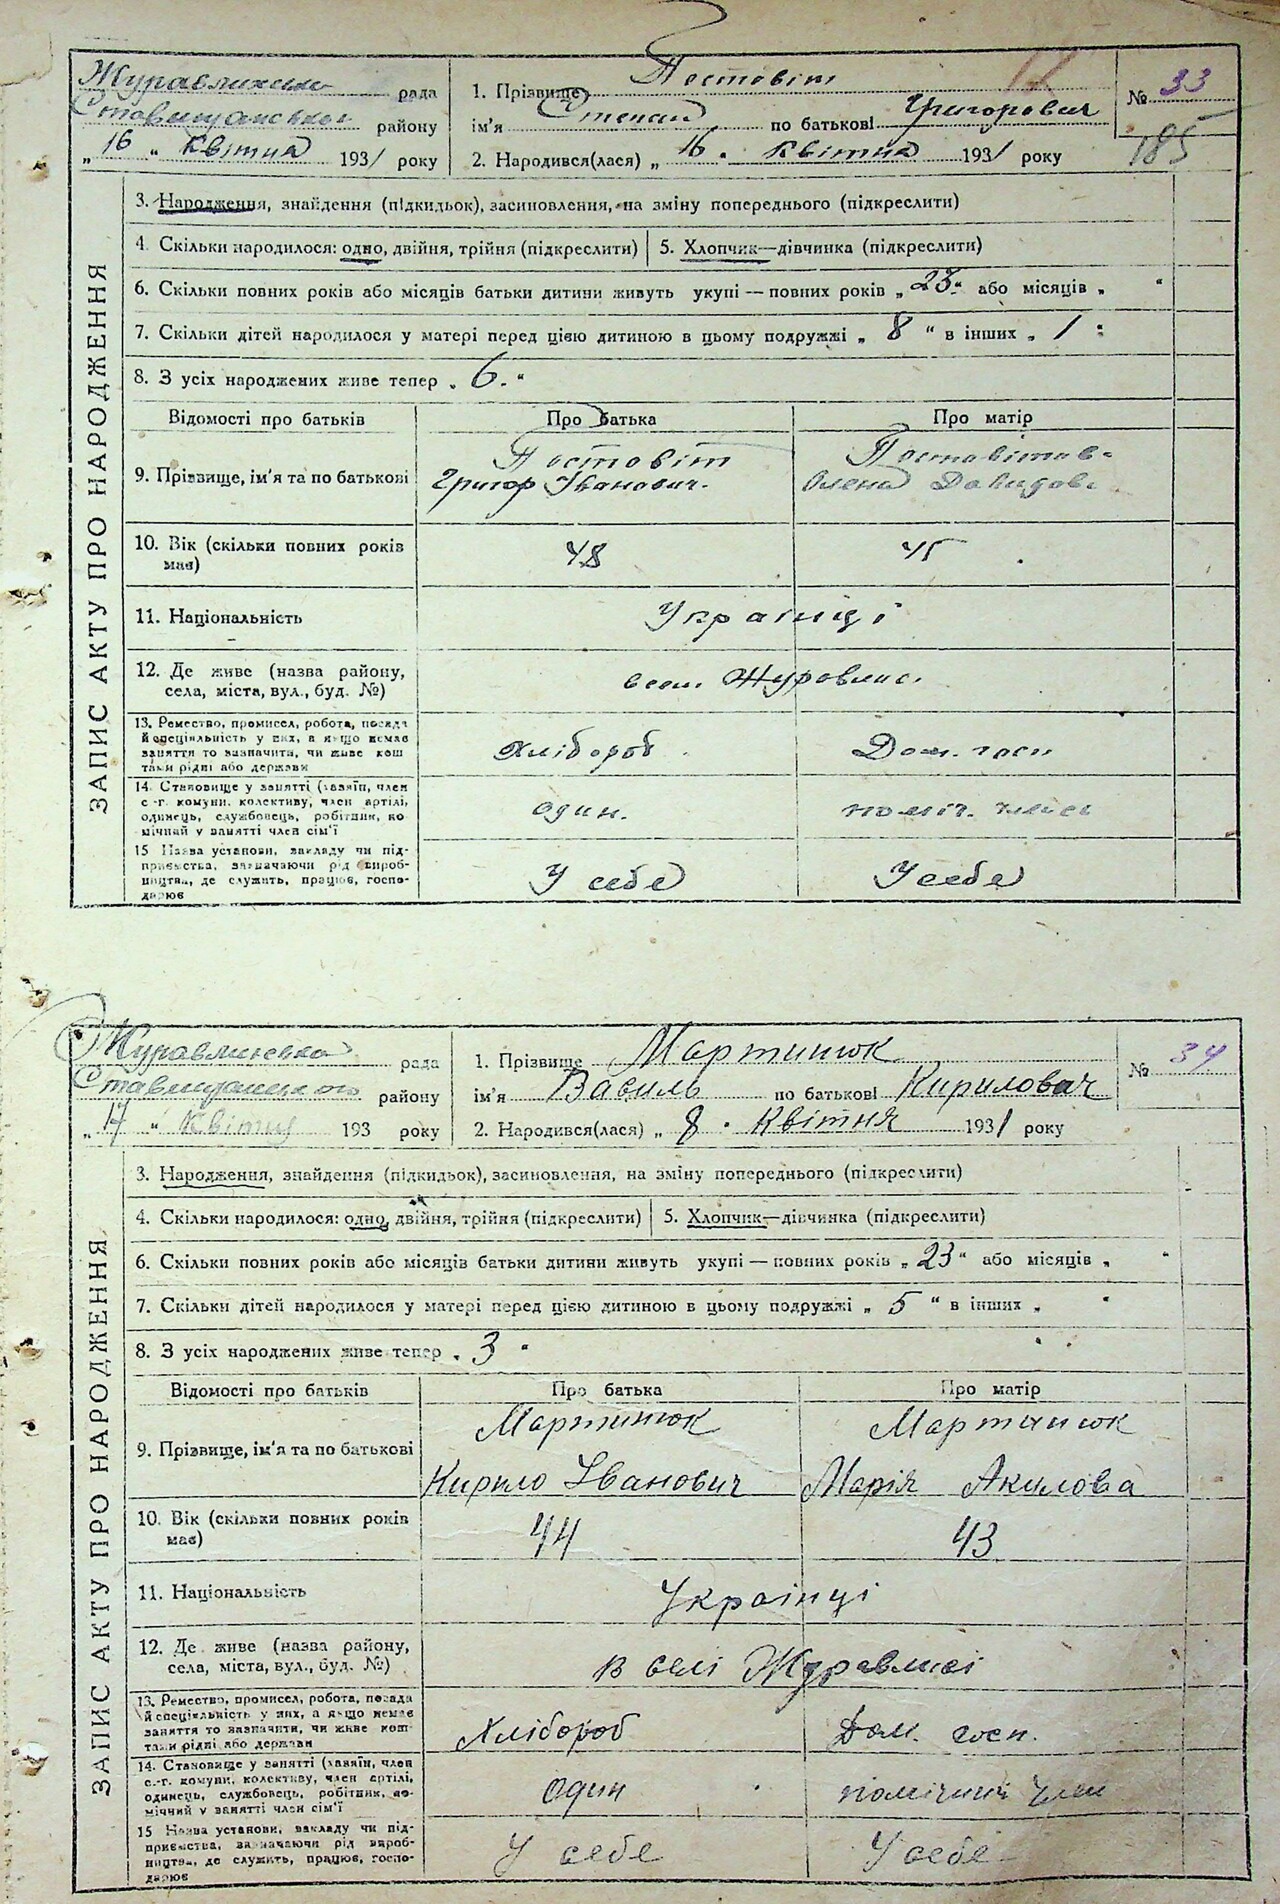 Журавлинська рада
Ставищанського району
„ 16 “ Квітня 1931 року
1. Прізвище Постовіт
ім'я Степан по батькові Григорович
2. Народився(лася) „ 16 “ Квітня 1931 року
№ 33
185
ЗАПИС АКТУ ПРО НАРОДЖЕННЯ
3. Народження, знайдення (підкидьок), засиновлення, на зміну попереднього (підкреслити)
4. Скільки народилося: одно, двійня, трійня (підкреслити) 5. Хлопчик—дівчинка (підкреслити)
6. Скільки повних років або місяців батьки дитини живуть укупі — повних років „ 23 “ або місяців „ “
7. Скільки дітей народилося у матері перед цією дитиною в цьому подружжі „ 8 “ в інших „ 1 “
8. З усіх народжених живе тепер „ 6. “
Відомості про батьків Про батька Про матір
9. Прізвище, ім'я та по батькові
Постовіт
Григор Іванович.
Постовітов-
Олена Давидов.
10. Вік (скільки повних років має) 48 45
11. Національність Українці
12. Де живе (назва району,
села, міста, вул., буд. №)
Журовлис.
13. Ремество, промисел, робота, посада
й спеціяльність у них, а якщо немає
заняття то зазначити, чи живе кош
тами рідні або держави
Хлібороб Дом. госп
14. Становище у занятті (хазяїн, член
с.-г. комуни, колективу, член артілі,
одинець, службовець, робітник, по
мічний у занятті член сім'ї
один. поміч. член
15 Назва установи, закладу чи під-
приємства, зазначаючи рід вироб-
ництва, де служить, працює, госпо-
дарює
У себе У себе
Журавлинська рада
Ставищанського району
„ 17 “ Квітня 193 року
1. Прізвище Мартинюк
ім'я Василь по батькові Кирилович
2. Народився(лася) „ 8 “ Квітня 1931 року
№ 34
ЗАПИС АКТУ ПРО НАРОДЖЕННЯ
3. Народження, знайдення (підкидьок), засиновлення, на зміну попереднього (підкреслити)
4. Скільки народилося: одно, двійня, трійня (підкреслити) 5. Хлопчик—дівчинка (підкреслити)
6. Скільки повних років або місяців батьки дитини живуть укупі — повних років „ 23 “ або місяців „ “
7. Скільки дітей народилося у матері перед цією дитиною в цьому подружжі „ 5 “ в інших „ “
8. З усіх народжених живе тепер „ 3 “
Відомості про батьків Про батька Про матір
9. Прізвище, ім'я та по батькові
Мартинюк
Кирило Іванович
Мартинюк
Марія Акилова
10. Вік (скільки повних років має) 44 43
11. Національність Українці
12. Де живе (назва району,
села, міста, вул., буд. №)
в селі Журавлисі
13. Ремество, промисел, робота, посада
й спеціяльність у них, а якщо немає
заняття то зазначити, чи живе кош
тами рідні або держави
Хлібороб Дом. госп.
14. Становище у занятті (хазяїн, член
с.-г. комуни, колективу, член артілі,
одинець, службовець, робітник, по-
мічний у занятті член сім'ї
один помічний член
15 Назва установи, закладу чи під-
приємства, зазначаючи рід вироб-
ництва, де служить, працює, госпо-
дарює
У себе У себе